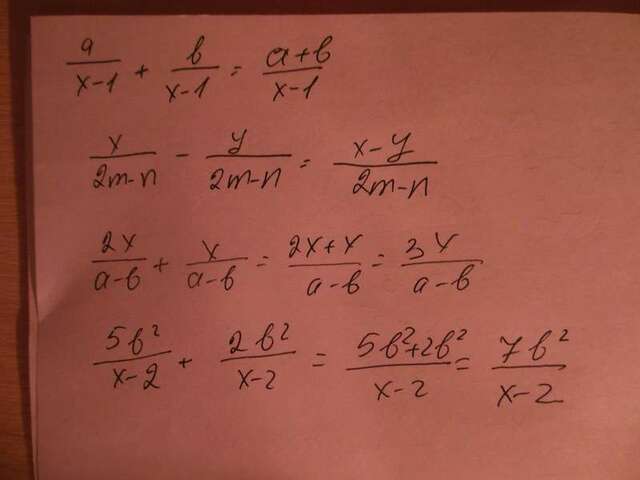 a/(x-1) + b/(x-1) = (a+b)/(x-1)
x/(2m-n) - y/(2m-n) = (x-y)/(2m-n)
2x/(a-b) + x/(a-b) = (2x+x)/(a-b) = 3x/(a-b)
5b²/(x-2) + 2b²/(x-2) = (5b²+2b²)/(x-2) = 7b²/(x-2)